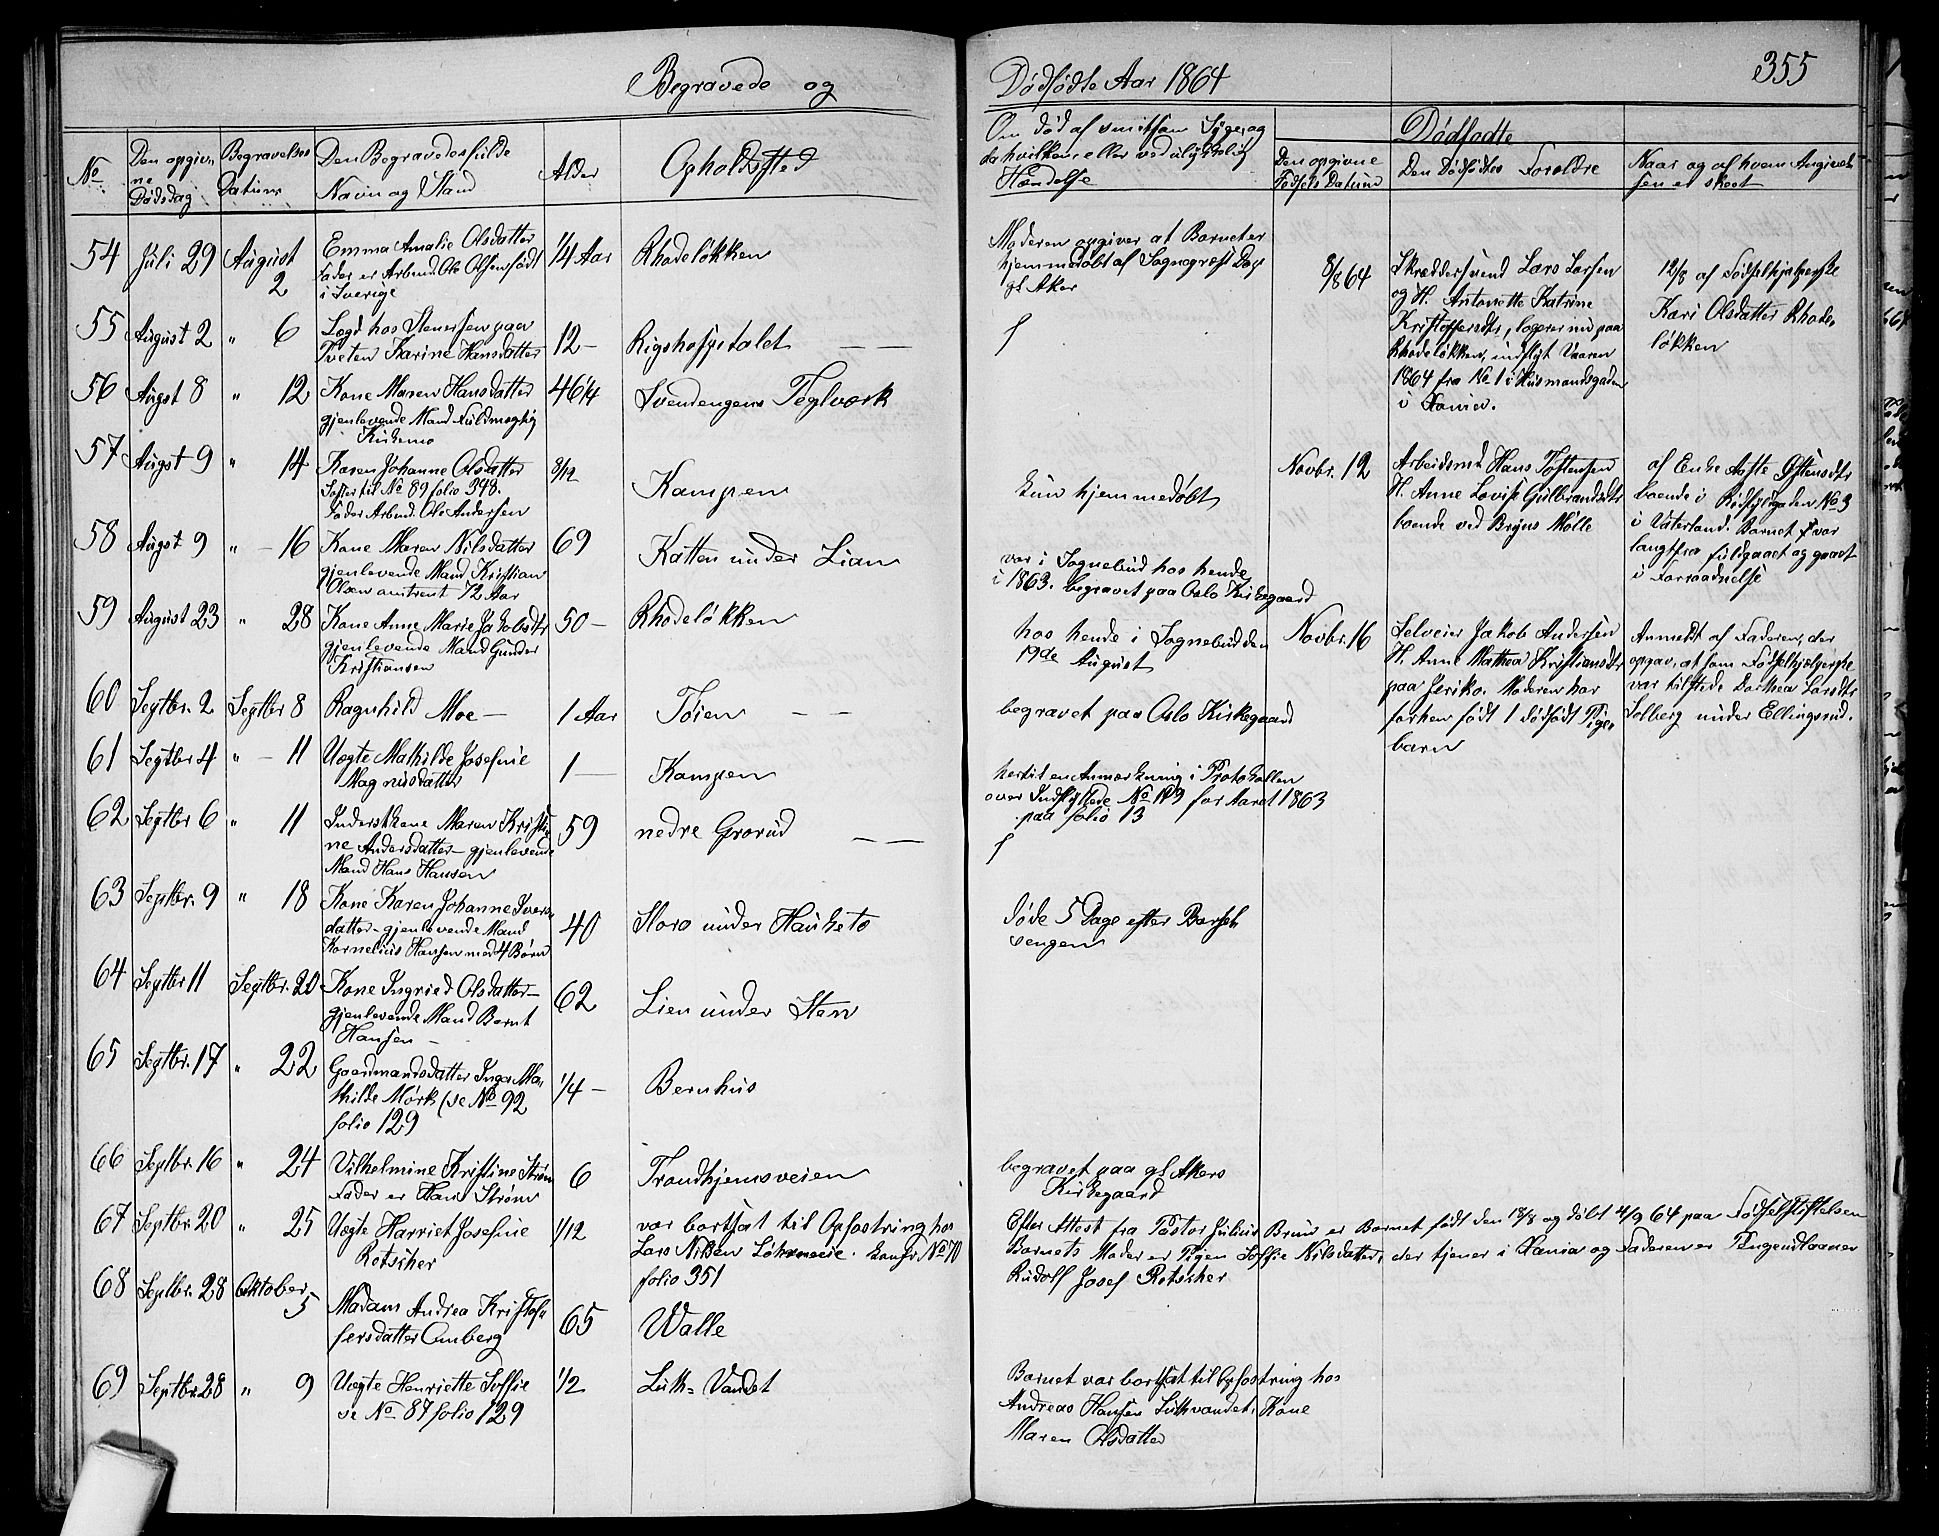 Begravede og
No
Den opgiv-
ne
Dødsdag
Begravelses
Datum
Den Begravedes fulde
Navn og Stand
Alder
Opholdsted
54 Juli 29 August 2
Emma Amalie Olsdatter
Fader er Arbmd. Ole Olsen født
i Sverige
1/4 Aar Rhodeløkken
55 August 2 " 6
Lægd hos Stenersen paa
Tveten Karine Hansdatter
12 — Rigshospitalet — —
56 Augst 8 " 12
Kone Maren Hansdatter
gjenlevende Mand Fuldmægtig
Kirkemo
46 1/4 Svendengens Teglværk
57 Augst 9 " 14
Karen Johanne Olsdatter
Søster til No 89 folio 348.
Fader Arbmd. Ole Andersen
8/12 Kampen
58 Augst 9 " — 16
Kone Maren Nilsdatter
gjenlevende Mand Kristian
Olsen omtrent 72 Aar
69 Katten under Lian
59 August 23 " 28
Kone Anne Marie Jakobsdtr
gjenlevende Mand Gunder
Kristiansen
50 — Rhodeløkken
60 Septbr. 2 Septbr 8
Ragnhild Moe —
1 Aar Tøien — —
61 Septbr 4 " — 11
Uægte Mathilde Josefine
Magnusdatter
1 — Kampen
62 Septbr 6 " 11
Inderstkone Maren Kristi-
ne Andersdatter — gjenlevende
Mand Hans Hansen
59 nedre Grorud — —
63 Septbr. 9 " 18
Kone Karen Johanne Ivers-
datter — gjenlevende Mand
Kornelius Hansen med 4 Børn
40 Storo under Hauketo
64 Septbr 11 Septbr. 20
Kone Ingried Olsdatter —
gjenlevende Mand Bernt
Hansen —
62 Lien under Sten
65 Septbr. 17 " 22
Gaardmandsdatter Inga Ma-
thilde Mørk (se No 92
folio 129
1/4 — Bernhus
66 Septbr. 16 " 24
Vilhelmine Kristine Strøm
Fader er Hans Strøm
6 Trondhjemsveien
67 Septbr. 20 " 25
Uægte Harriet Josefine
Rotsiker
1/12 var bortsat til Opfostring hos
Lars Nilsen . Konfr. No 70
folio 351
68 Septbr. 28 Oktober 5
Madam Andrea Kristof-
fersdatter Omberg
65 Walle
69 Septbr. 28 " 9
Uægte Henriette Soffie
se No 87 folio 129
1/2 Luth-Vandet
Dødfødte Aar 1864
355
Om død af smitsom Syge, og
da hvilken, eller ved ulykkelig
Hændelse
Dødfødte
Den opgivne
Fødsels Datum
Den Dødfødtes Forældre
Naar og af hvem Angivel-
sen er skeet
Moderen opgiver at Barnet er
hjemmedøbt af Sogneprest
gl Aker
8/8 64
Skræddersvend Lars Larsen
og H. Antonette Katrine
Kristoffersdtr, logerer nu paa
Rhodeløkken, indflyt Vaaren
1864 fra No 1 i Husmandsgaden
i Xania.
12/8 af Fødselhjælperske
Kari Olsdatter Rhode-
løkken
f
kun hjemmedøbt
Novbr. 12
Arbeidsmd Hans Tostensen
H. Anne Lovise Gulbrandsdtr
boende ved Bryns Mølle
af Enke Aaste Østensdtr
boende i Rødfyldgaden No 3
i Vaterland. Barnet var
langtfra fuldgaaet og gaaet
i Forraadnelse
var i Sognebud hos hende
i 1863. begravet paa Oslo Kirkegaard
hos hende i Sognebud den
19de August
Novbr. 16
Selveier Jakob Andersen
H. Anne Mathea Kristiansdtr
paa Jeriko. Moderen har
forhen født 1 dødfødt Pige-
barn
Anmeldt af Faderen, der
opgav, at som Fødselhjelperske
var tilstede Dorthea Larsdtr
Solberg under Ellingsrud.
begravet paa Oslo Kirkegaard
hertil en Anmærkning i Protokollen
over Indflyttede No 193 for Aaret 1863
paa folio 13
f
døde 5 Dage efter Barsel-
sengen
begravet paa gl Akers
Kirkegaard
Efter Attest fra Pastor Julius Bruun er Barnet født den 18/8 og døbt 4/9 64 paa Fødselstiftelsen
Barnets Moder er Pigen Soffie Nilsdatter, der tjener i Xania og Faderen er
Rudolf Josef Rotsiker
Barnet var bortsat til Opfostring hos
Andreas Hansen Luthvandet. Kone
Maren Olsdatter